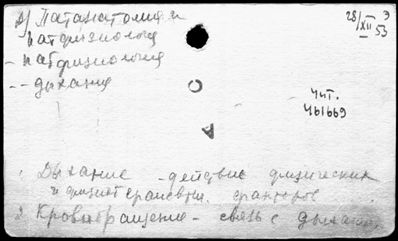 а) Патанатомия и
патфизиология
- патфизиология
-- дыхания
28/XII 53
Э
Чит.
461669
1. Дыхание - действие физических
и физиотерапевтич. факторов
2. Кровообращение - связь с дыхани.